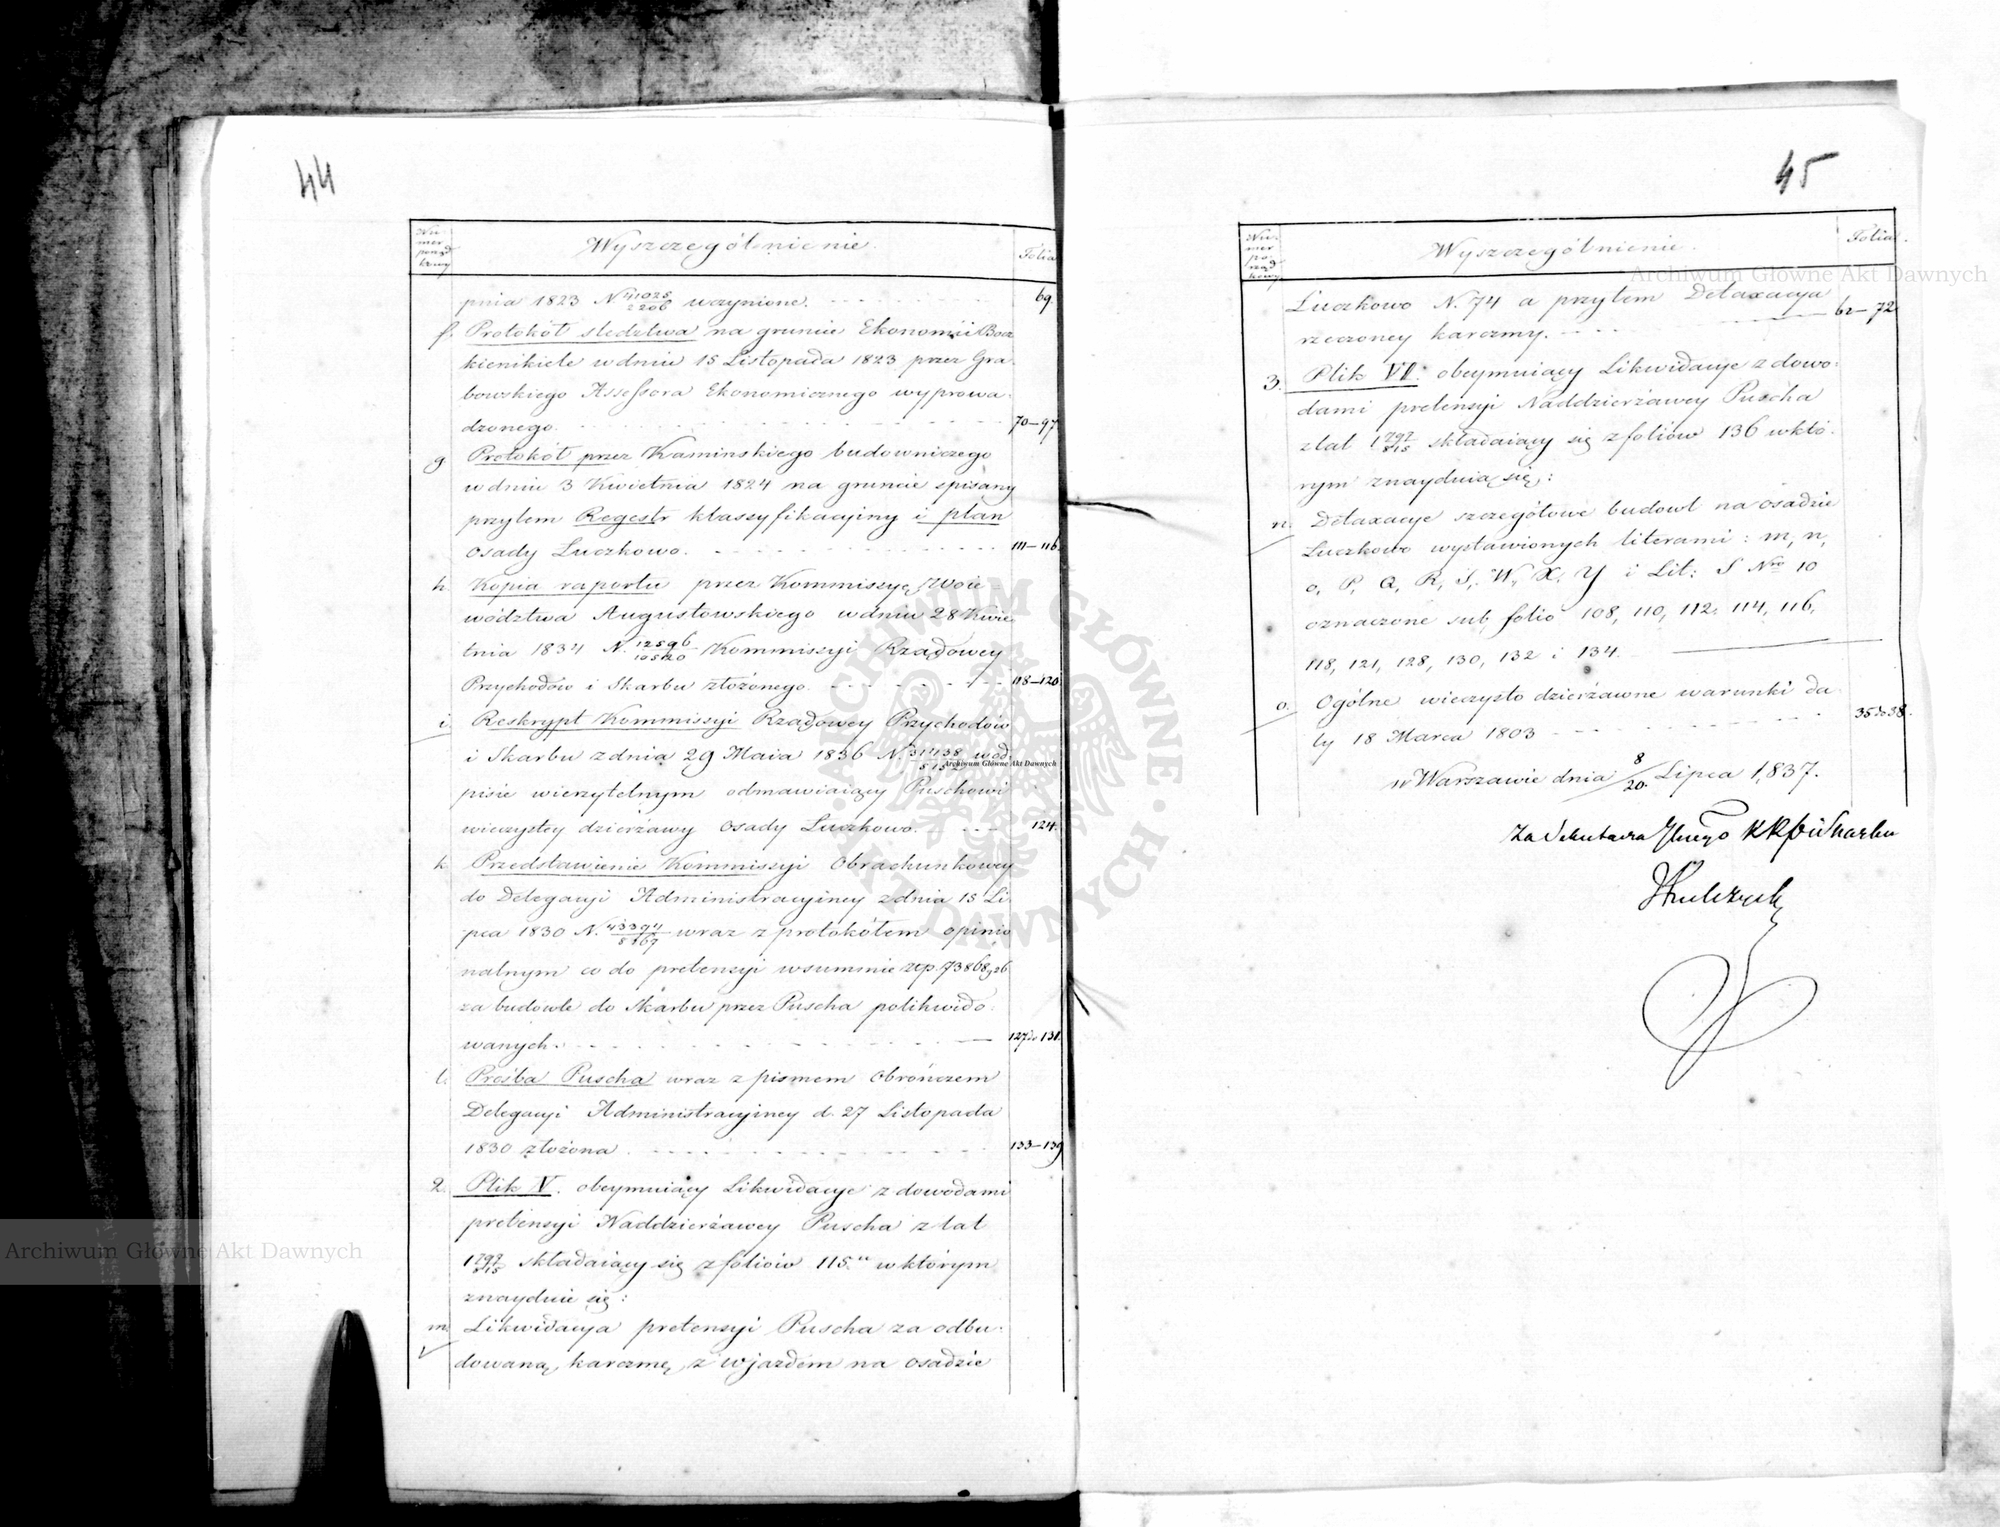 44
Numer porządkowy
Wyszczególnienie.
Folia
pnia 1823 N. 41025/2206 uczynione.
69.
f. Protokół śledztwa na gruncie Ekonomii Bocz
kienikiele w dniu 15 Listopada 1823 przez Gra-
bowskiego Assessora Ekonomicznego wyprowa-
dzonego.
70—97
g Protokół przez Kaminskiego budowniczego
w dniu 3 Kwietnia 1824 na gruncie spisany
przytem Regestr klassyfikacyiny i plan
osady Luczkowo.
111—116.
h. Kopia raportu przez Kommissyę Woie-
wództwa Augustowskiego w dniu 28 Kwie-
tnia 1834 N. 12596/10520 Kommissyi Rządowey
Przychodów i Skarbu złożonego.
118—120.
i. Reskrypt Kommissyi Rządowey Przychodów
i Skarbu z dnia 29 Maia 1836 N. w od-
pisie wierzytelnym odmawiaiący Puschowi
wieczystey dzierżawy osady Luczkowo.
124.
k. Przedstawienie Kommissyi Obrachunkowey
do Delegacyi Administracyiney z dnia 15 Li-
pca 1830 N. wraz z protokółem opinio
nalnym co do pretensyi w summie złp. 73868,26
za budowle do Skarbu przez Puscha polikwido-
wanych.
127 do 131.
l. Prośba Puscha wraz z pismem Obrończem
Delegacyi Administracyiney d. 27 Listopada
1830 złożona
133—139
2. Plik V. obeymuiący Likwidacye z dowodami
pretensyi Naddzierżawcy Puscha z lat
1797/815 składaiący się z foliów 115. w którym
znayduie się:
m. Likwidacya pretensyi Puscha za odbu-
dowaną karczmę z wjazdem na osadzie
45
Numer porządkowy
Wyszczególnienie.
Folia.
Luczkowo N. 74 a przytem Detaxacya
rzeczoney karczmy.
62—72
3. Plik VI. obeymuiący Likwidacye z dowo-
dami pretensyi Naddzierżawcy Puscha
z lat 1797/815 składaiący się z foliów 136 w któ-
rym znayduią się:
n. Detaxacye szczegółowe budowl na osadzie
Luczkowo wystawionych literami: m, n,
o, P, Q, R, S, W, X, Y i Lit: S Nro 10
oznaczone sub folio 108, 110, 112, 114, 116,
118, 121, 128, 130, 132 i 134.
o. Ogólne wieczysto dzierżawne warunki da-
ty 18 Marca 1803
35 do 38.
w Warszawie dnia 8/20. Lipca 1837.
Za Sekretarza Jlnego KRP i Skarbu
Archiwum Główne Akt Dawnych
Archiwum Główne Akt Dawnych
Archiwum Główne Akt Dawnych
ARCHIWUM GŁÓWNE · AKT DAWNYCH ·